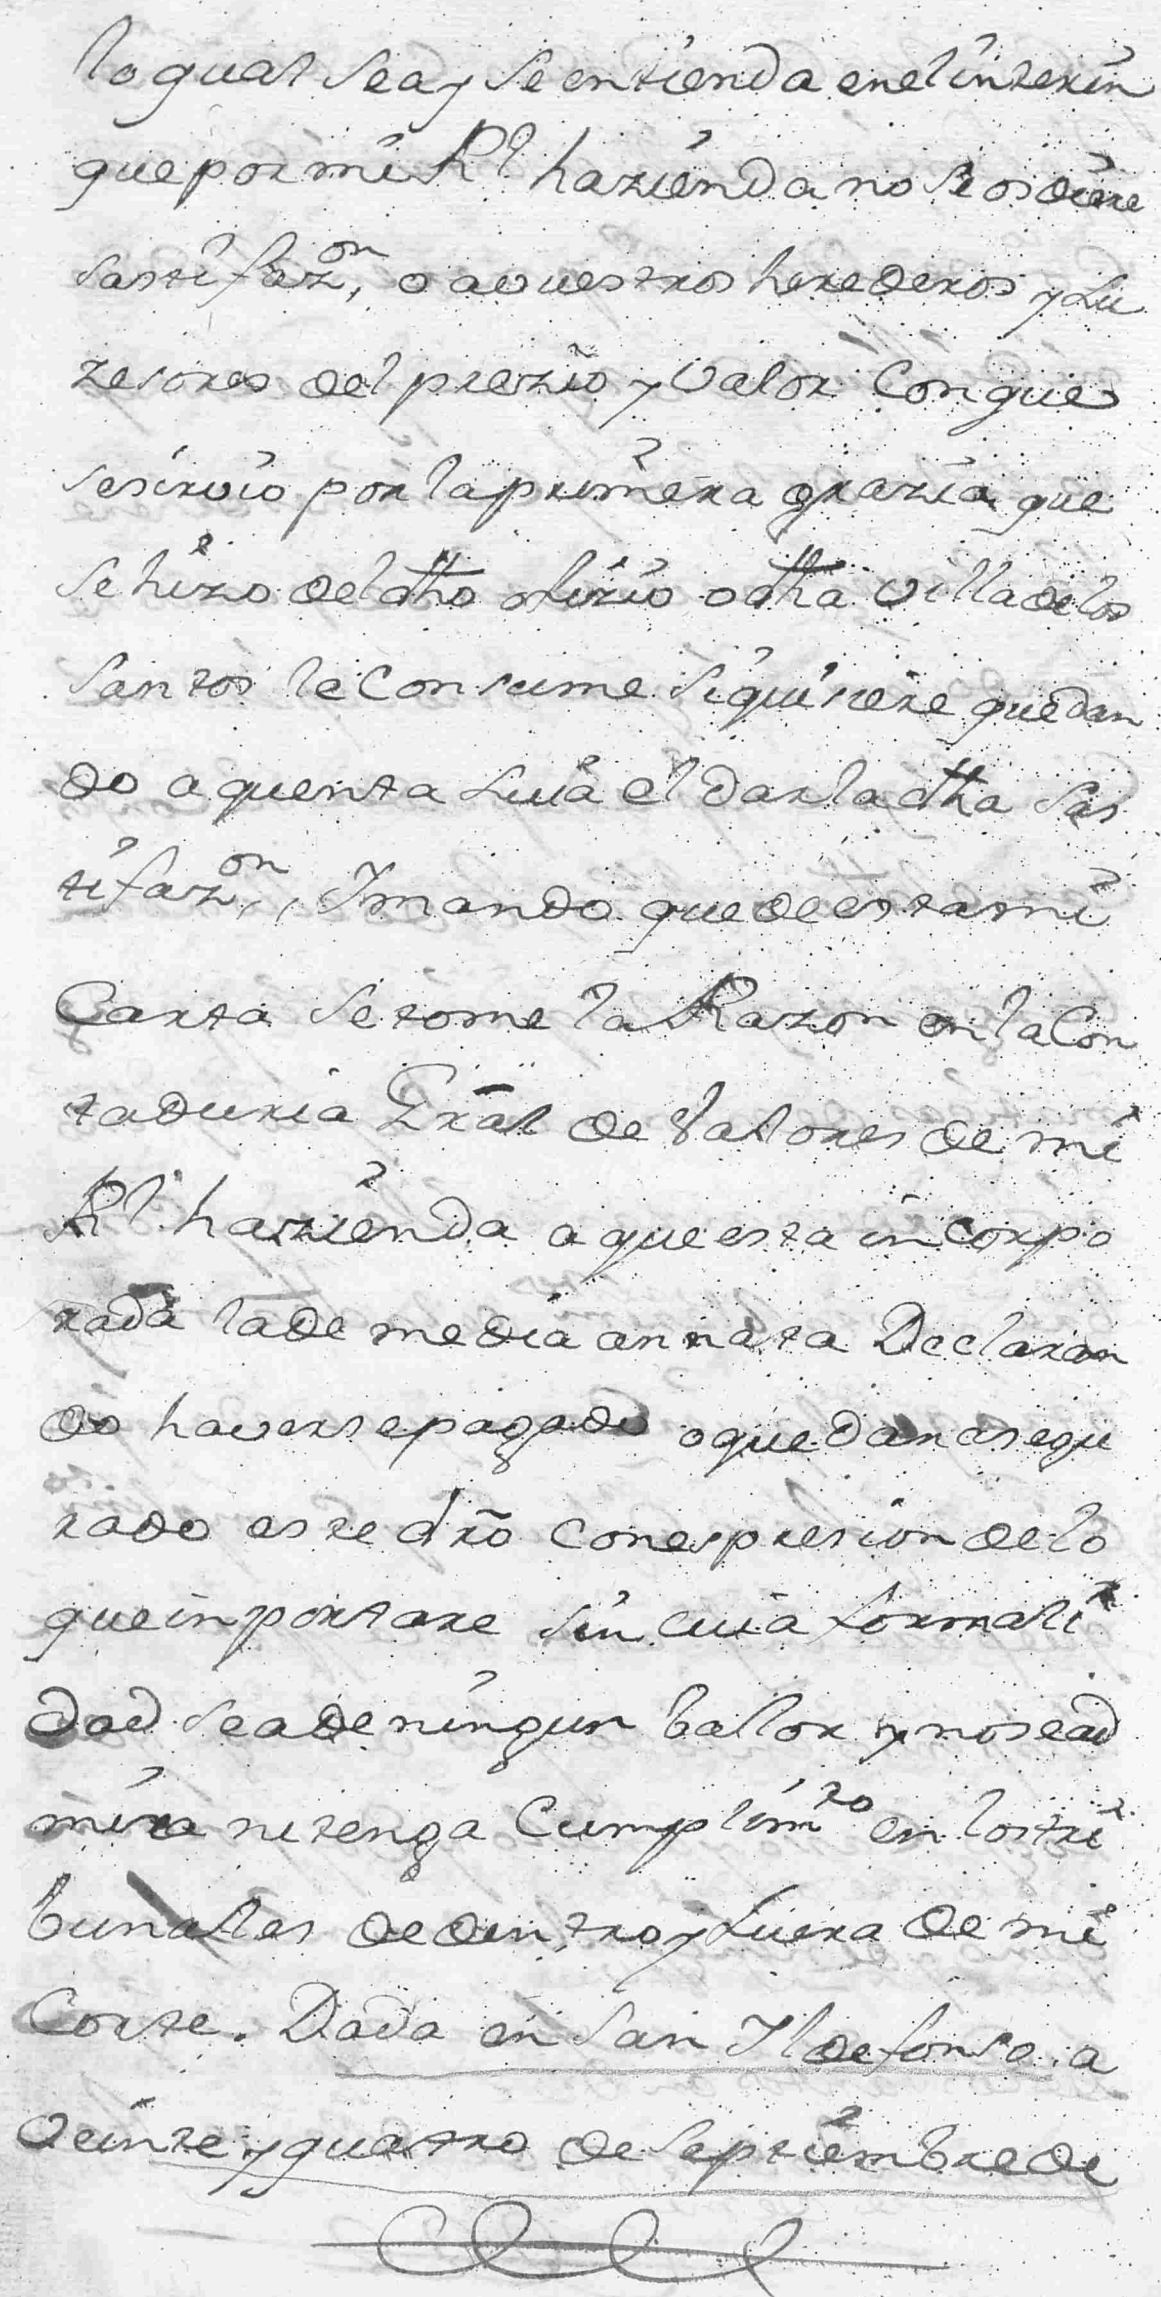 lo qual sea y se entienda en el interin
que por mi Rl. hazienda no se os diere
sastifazon, o a vuestros herederos y su
zesores del prezio y valor con que
se sirvio por la primera grazia que
se hizo del dho ofizio o dha villa de los
Santos le consume si quisiere quedan
do a quenta suia el dar la dha sas
tifazon,, Y mando que de esta mi
Carta se tome la Razon en la Con
taduria Gral de Valores de mi
Rl. hazienda a que esta incorpo
rada la de media annata Declaran
do haverse pagado o quedar asegu
rado este dro con espresion de lo
que inportare sin cuia formali
dad sea de ningun balor y no se ad
mita ni tenga Cumplimto en los tri
bunalles de dentro y fuera de mi
Corte. Dada en San Yldefonso a
Veinte y quatro de Septiembre de